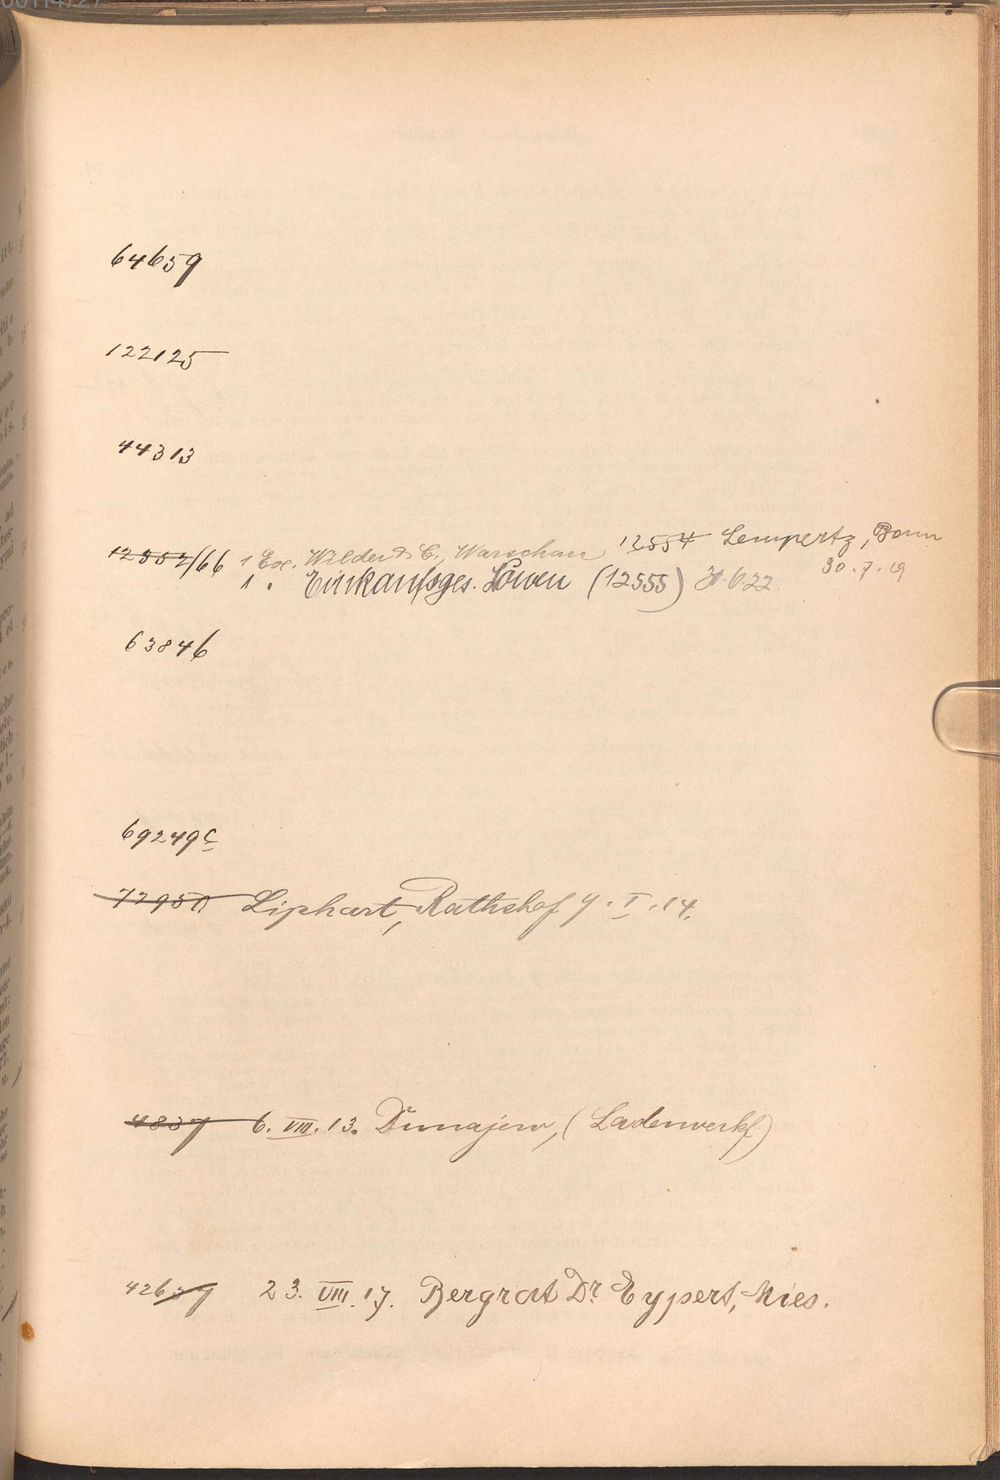 64659
122125
44313
12552/66 1 Ex. Wilder & C., Warschau 12554 Lempertz, Bonn
1 " Einkaufsges. Löwen (12555) 30.6.22 30.7.19
63846
69249c
72950 Liphart, Rathshof 9.I.14.
4837 6.VIII.13. Dunajew, (Ladenverkf.)
42637 23.VIII.17. Bergrat Dr. Eypert, Mies.